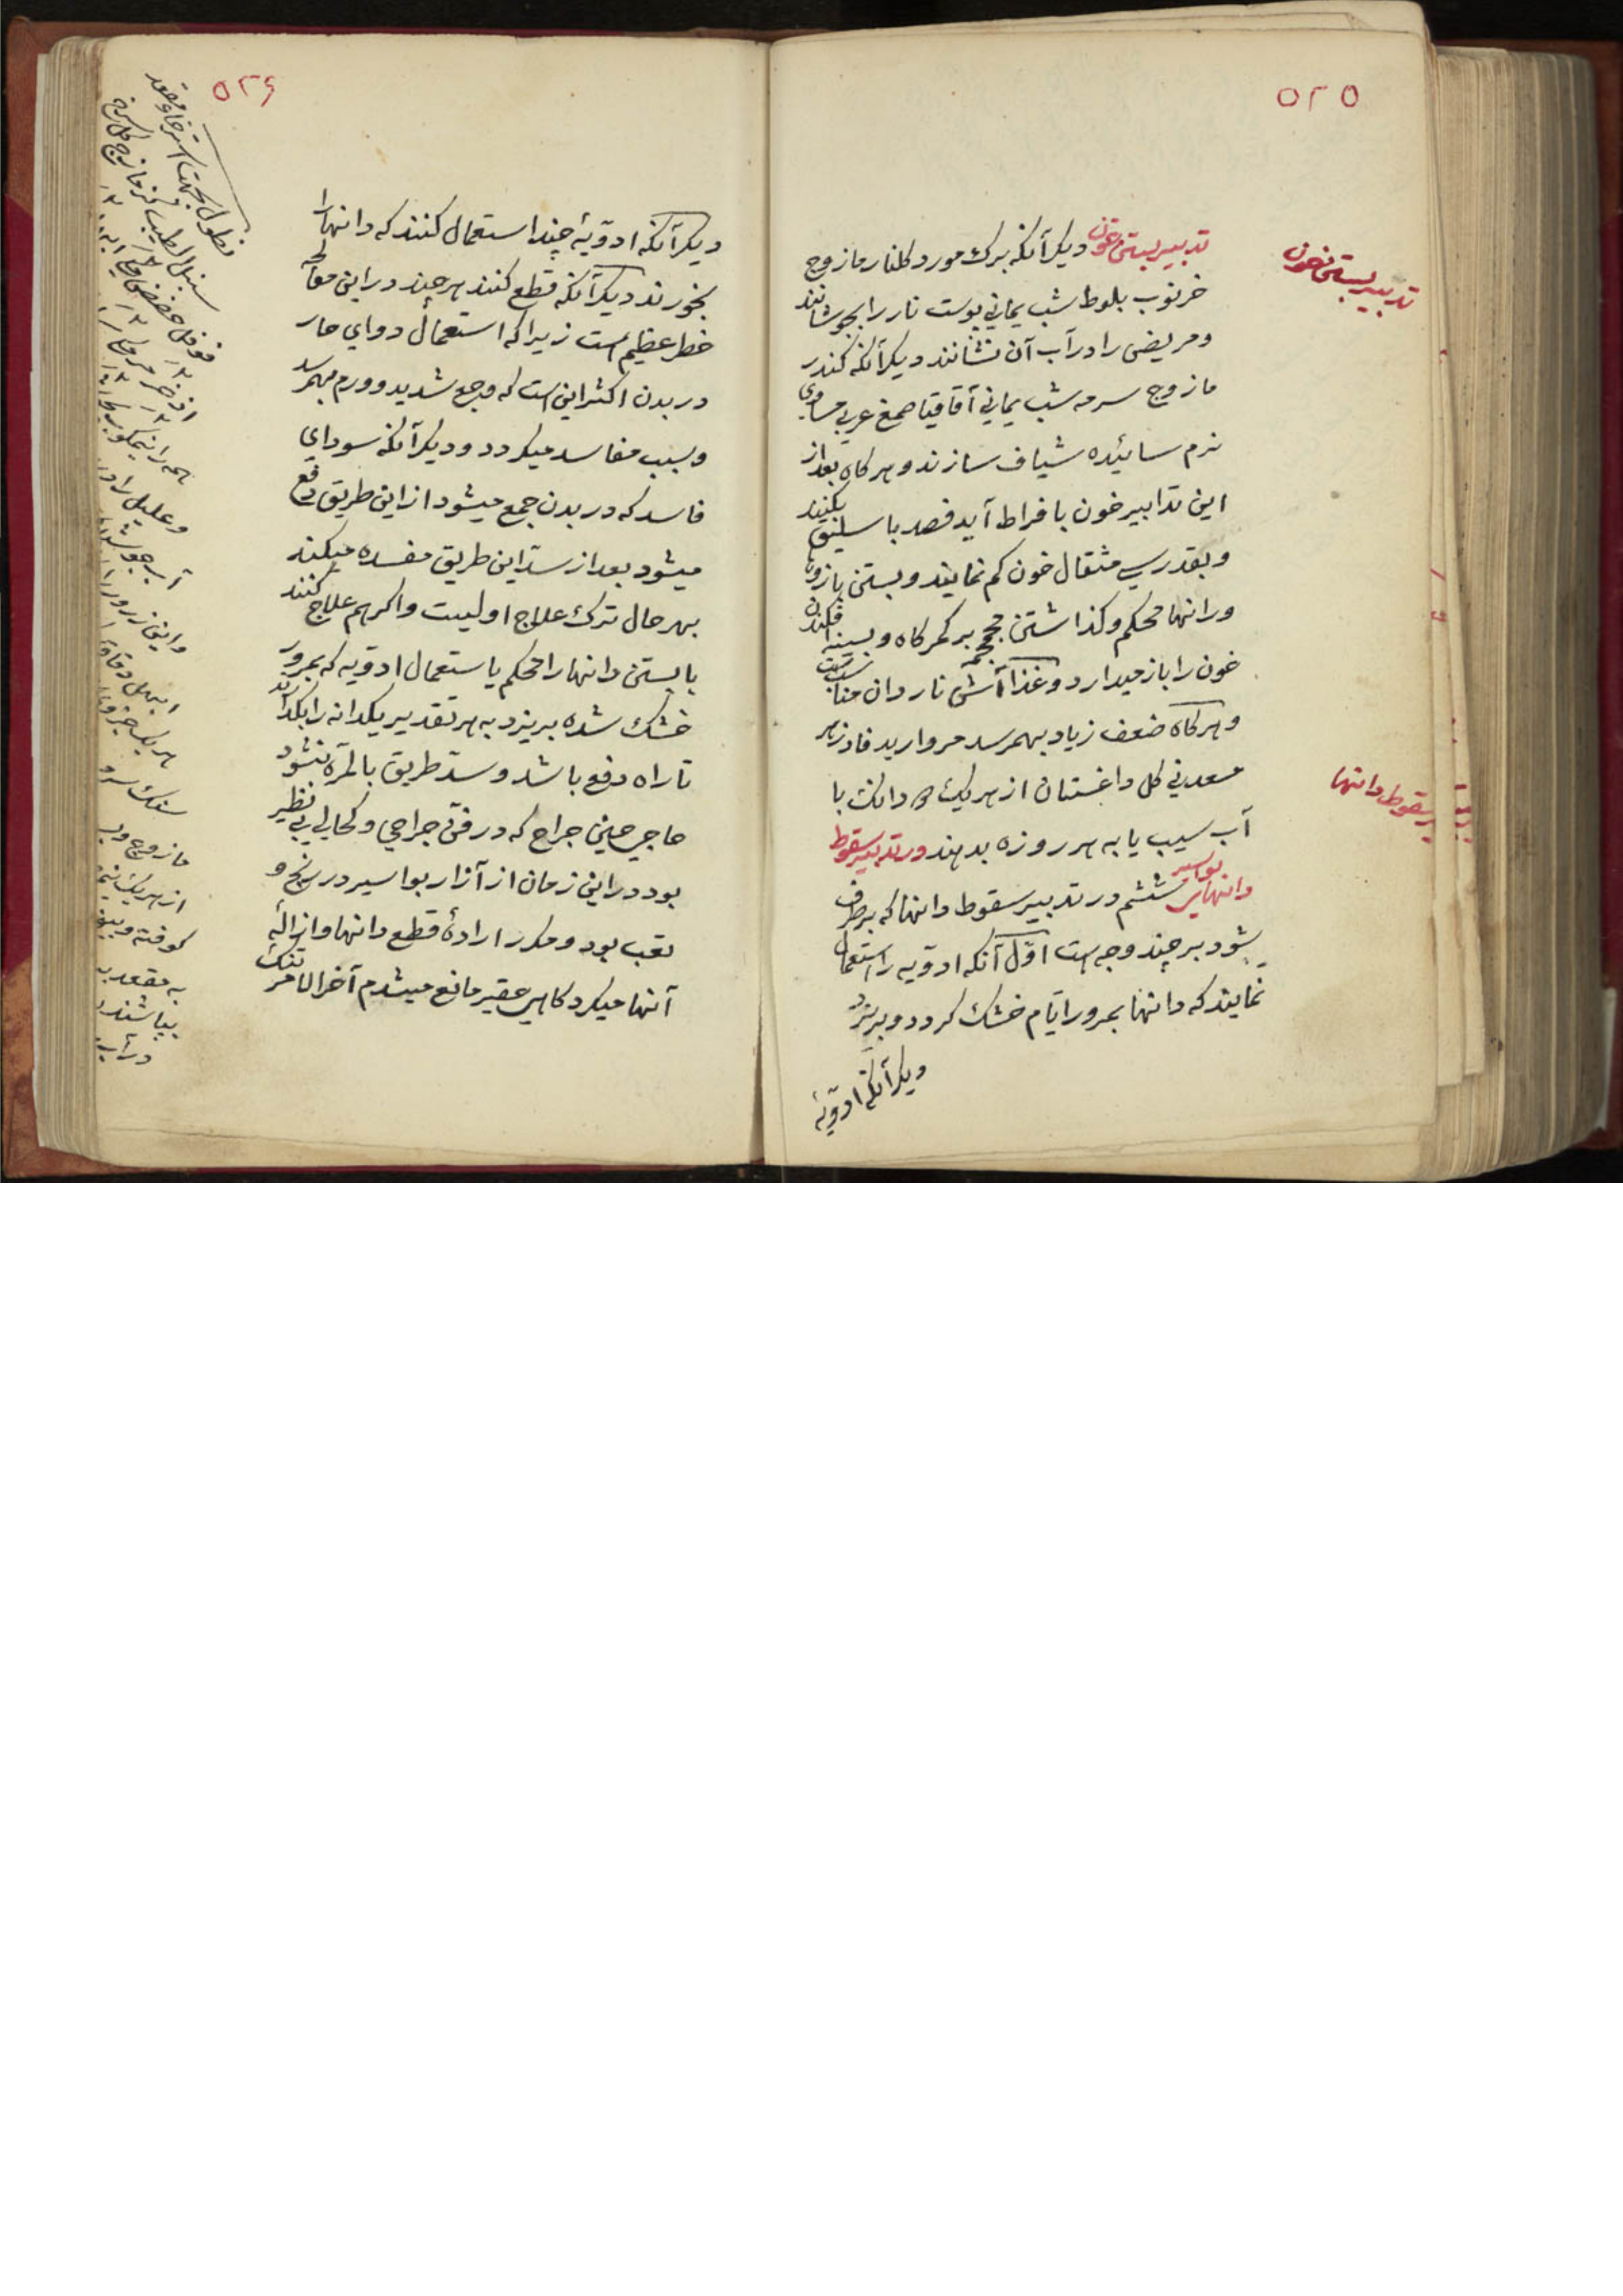 ۵۲۵
تدبیر بستن خون
تدبیر بستن خون دیکر آنکه برک مورد کلنار مازوج
خرنوب بلوط شب یمانی پوست نار را بجوشانند
و مریض را در آب آن نشانند دیکر آنکه کندر
مازوج سرمه شب یمانی آقاقیا صمغ عربی مساوی
نرم سائیده شیاف سازند و هرکاه بعد از
این تدابیر خون بافراط آید فصد باسلیق بکنند
و بقدر سی مثقال خون کم نمایند و بستن بازوها
و رانها محکم و کذاشتن محجمه بر کمرکاه و بسینه افکندن
خون را باز میدارد و غذا آش ناردان مناسبست
و هرکاه ضعف زیاد بهمرسد مروارید فادزهر
معدنی کل داغستان از هر یک دانک با
آب سیب یا به هر روزه بدهند در تدبیر سقوط
سقوط دانها
دانهای بواسیر ششم در تدبیر سقوط دانها که برطرف
شود بر چند وجه است اوّل آنکه ادویه را استعمال
نمایند که دانها بمرور ایّام خشک کردد و بریزد
دیکر آنکه ادویهٔ
۵۲۶
دیکر آنکه ادویهٔ چند استعمال کنند که دانها را
بخورند دیکر آنکه قطع کنند هر چند در این معآلجه
خطر عظیم است زیرا که استعمال دوای حار
در بدن اکثر این است که وجع شدید و ورم بهمرسد
و بسبب مفاسد میکردد و دیکر آنکه سودای
فاسد که در بدن جمع میشود از این طریق دفع
میشود بعد از سدّ این طریق مفسده میکند
بهر حال ترک علاج اولیست و اکر هم علاج کنند
یا بستن دانها را محکم یا استعمال ادویه که بمرور
خشک شده بریزد به هر تقدیر یکدانه را بکذارند
تا راه دفع باشد و سدّ طریق بالمرّه نشود
حاجی حسین جراح که در فنّ جراحی و کحالی بی نظیر
بود در این زمان از آزار بواسیر در رنج و
تعب بود و مکرر ارادهٔ قطع دانها و ازالهٔ
آنها میکرد کاهی حقیر مانع میشدم آخر الامر تنک
نطول بجهت استرخاء مقعد
سنبل الطیب کزمازج کل سرخ
فوفل حضض
اذخر
همه را نیمکوب
و علیل را در
آب
و این زرور را
ابهل
هر یک جزوی
سنک سرمه
مازوج
از هر یک
کوفته و بیخته
به مقعد
بپاشند